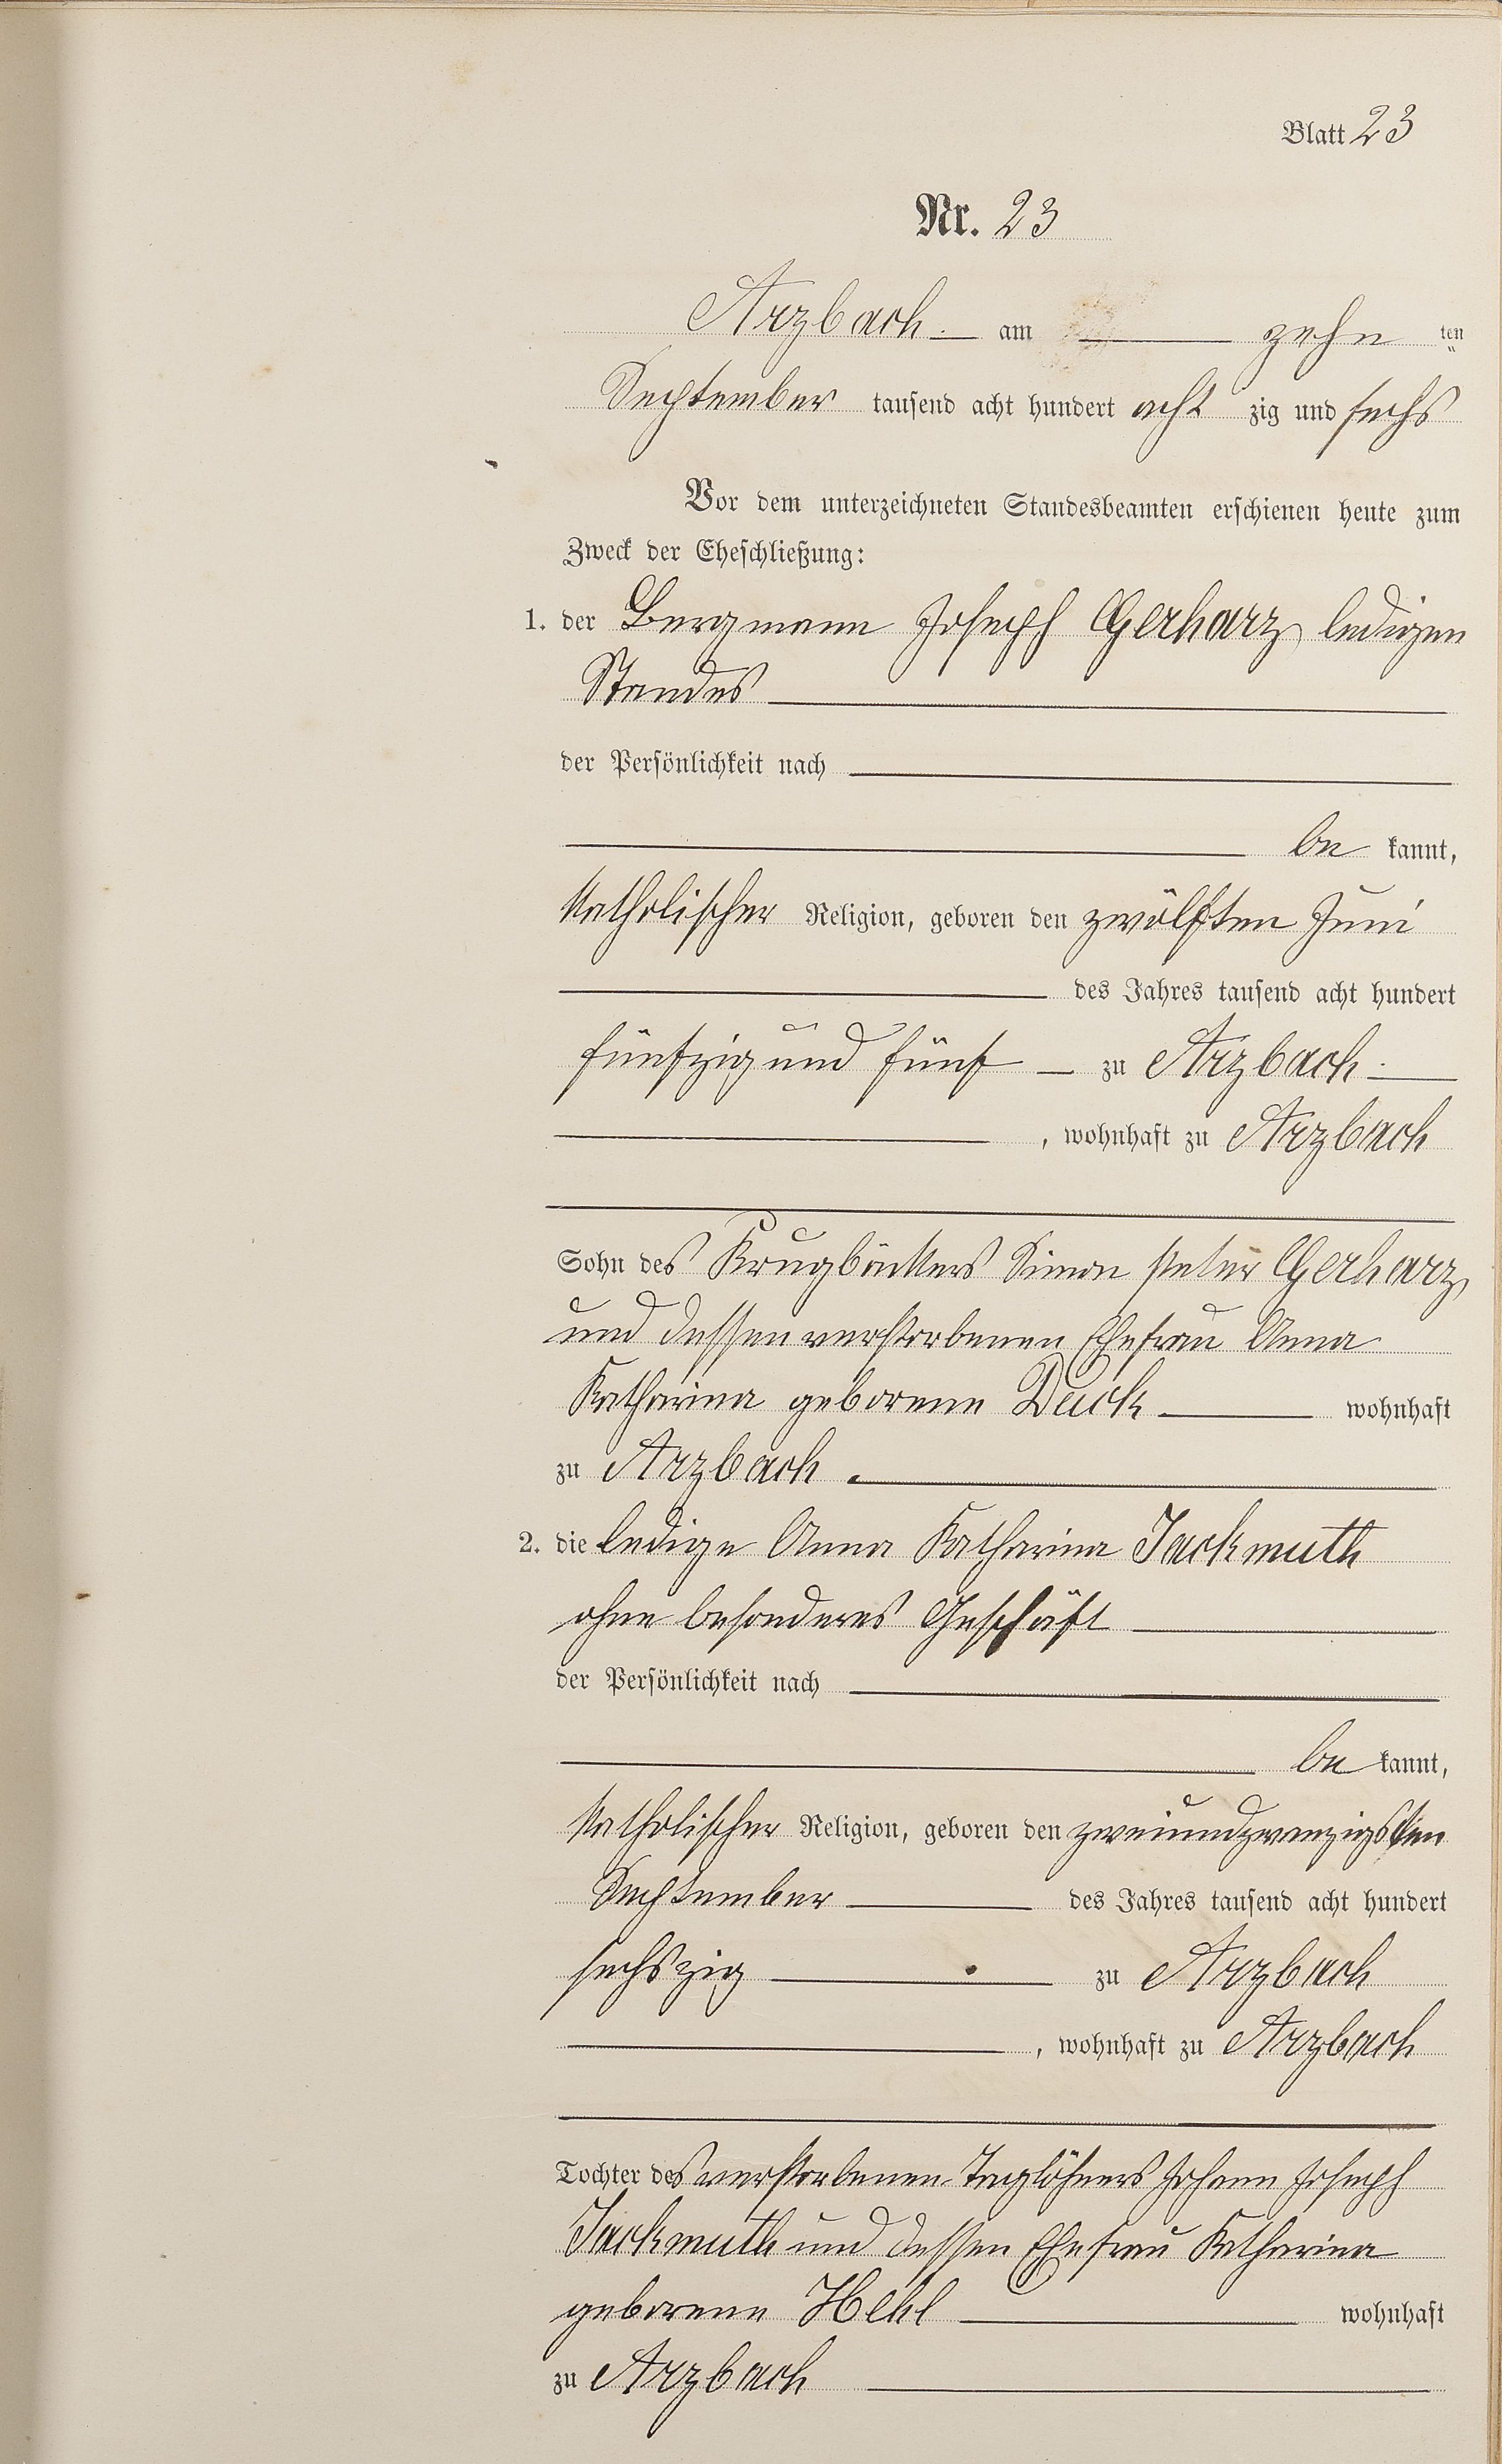 Blatt 23
Nr. 23
Arzbach am zehn ten
September tausend acht hundert acht zig und sechs
Vor dem unterzeichneten Standesbeamten erschienen heute zum
Zweck der Eheschließung:
1. der Bergmann Joseph Gerharz, ledigen
Standes
der Persönlichkeit nach
be kannt,
katholischer Religion, geboren den zwölften Juni
des Jahres tausend acht hundert
fünfzig und fünf zu Arzbach
, wohnhaft zu Arzbach
Sohn des Krugbäckers Simon Peter Gerharz,
und dessen verstorbenen Ehefrau Anna
Katharina geborene Duck wohnhaft
zu Arzbach.
2. die ledige Anna Katharina Jackmuth
ohne besonderes Geschäft
der Persönlichkeit nach
be kannt,
katholischer Religion, geboren den zweiundzwanzigsten
September des Jahres tausend acht hundert
sechszig zu Arzbach
, wohnhaft zu Arzbach
Tochter des verstorbenen Taglöhners Johann Joseph
Jackmuth und dessen Ehefrau Katharina
geborene Hehl wohnhaft
zu Arzbach